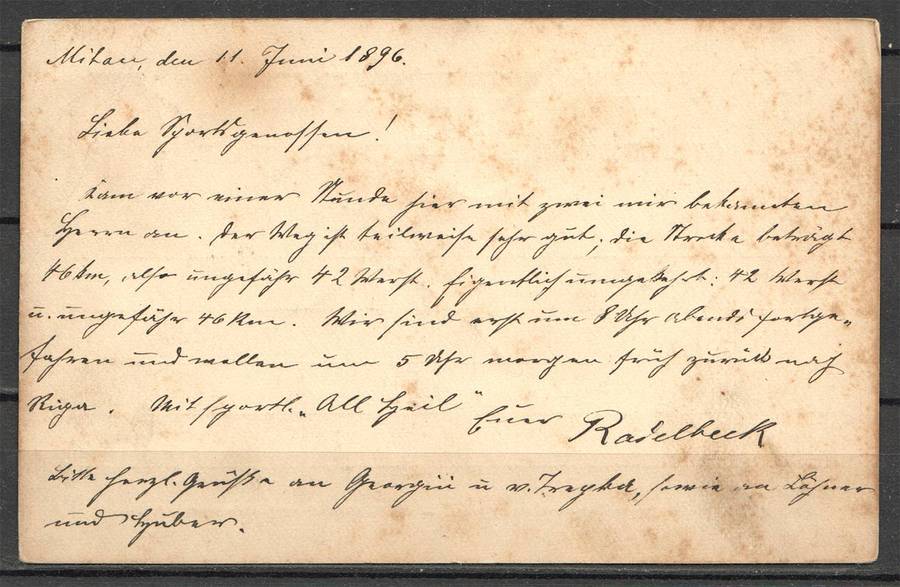 Mitau, den 11. Juni 1896.
Liebe Sportsgenossen!
Kam vor einer Stunde hier mit zwei mir bekannten
Herrn an. Der Weg ist teilweise sehr gut; die Strecke beträgt
46 km, also ungefähr 42 Werst. Eigentlich umgekehrt: 42 Werst
u. ungefähr 46 Km. Wir sind erst um 8 Uhr abends fortge„
fahren und wollen um 5 Uhr morgen früh zurück nach
Riga. Mit sportl. „All Heil" Euer Radelbeck
Bitte herzl. Grüße an Georgii u v., sowie an
und Huber.